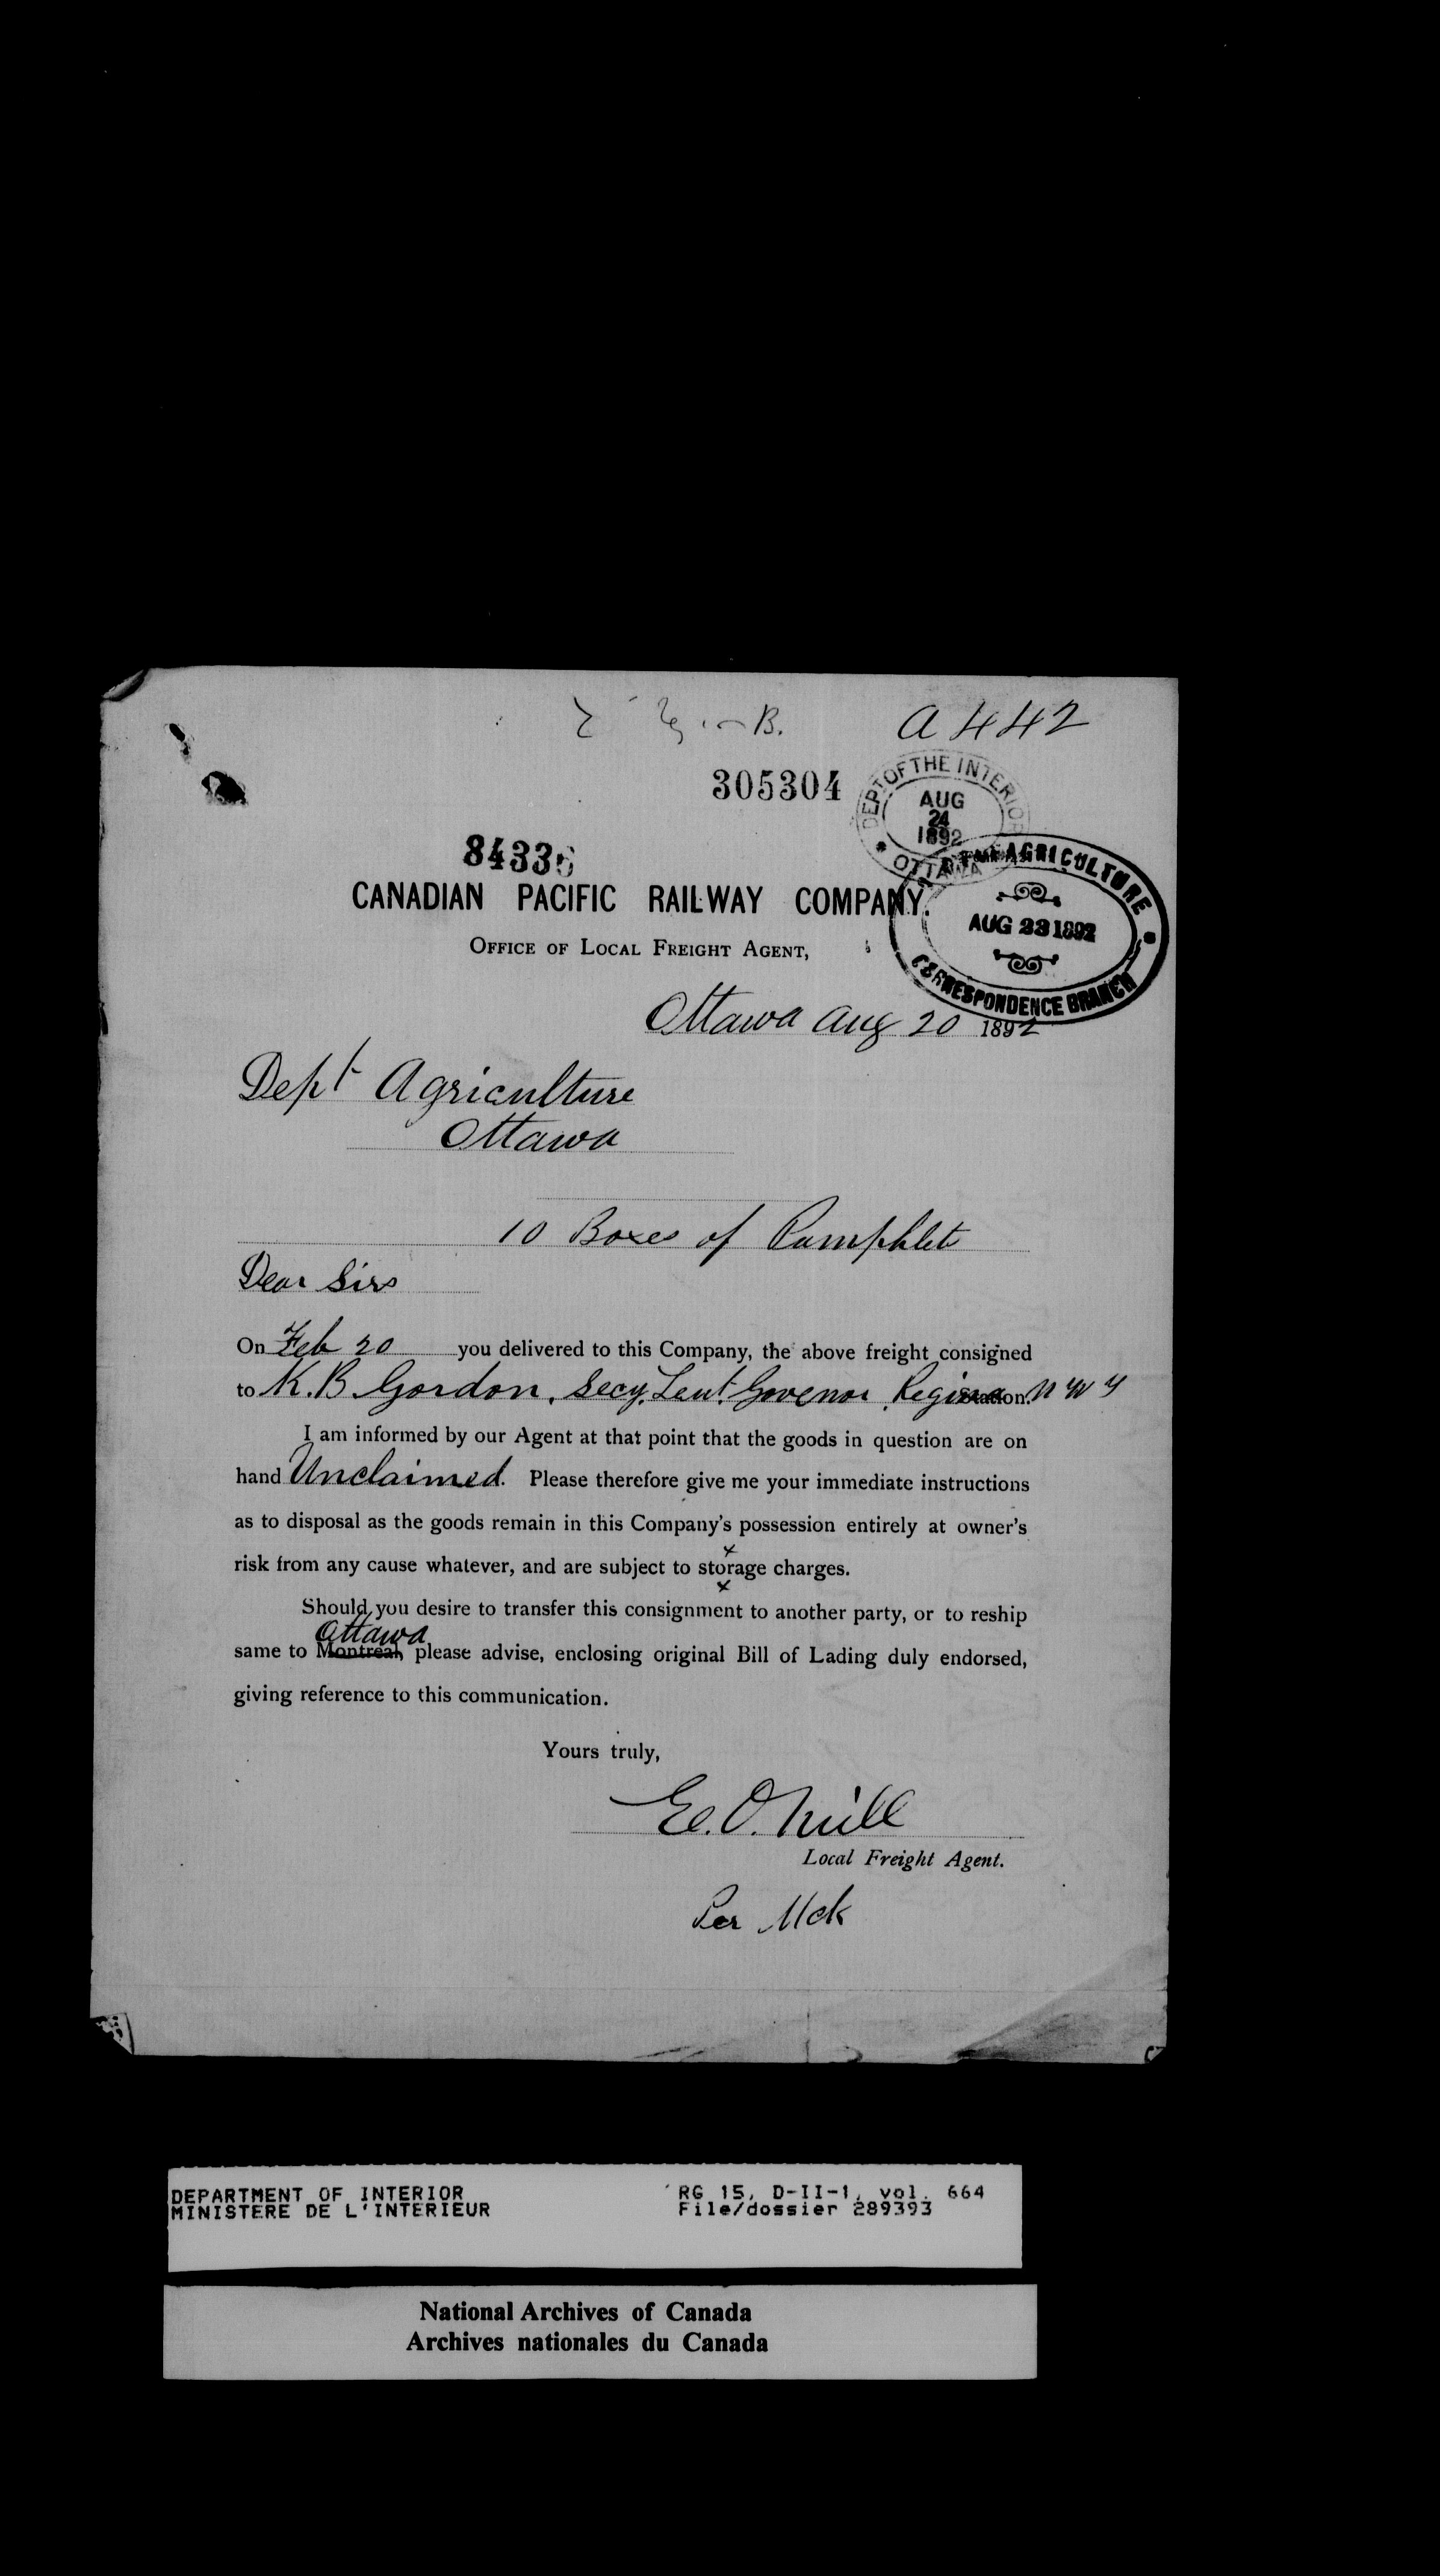 B.
A 442
305304
DEPT OF THE INTERIOR
AUG
24
1892
OTTAWA
84336
AGRICULTURE
AUG 23 1892
CORRESPONDENCE BRANCH
CANADIAN PACIFIC RAILWAY COMPANY.
OFFICE OF LOCAL FREIGHT AGENT,
Ottawa Aug 20 1892
Dept Agriculture
Ottawa
10 Boxes of Pamphlet
Dear Sirs
On Feb 20 you delivered to this Company, the above freight consigned
to K. B Gordon, Secy, Leut. Govenor Regina Station. N W Y
I am informed by our Agent at that point that the goods in question are on
hand Unclaimed. Please therefore give me your immediate instructions
as to disposal as the goods remain in this Company's possession entirely at owner's
x
risk from any cause whatever, and are subject to storage charges.
x
Should you desire to transfer this consignment to another party, or to reship
Ottawa
same to Montreal, please advise, enclosing original Bill of Lading duly endorsed,
giving reference to this communication.
Yours truly,
E. O. Neill
Local Freight Agent.
Per McK
DEPARTMENT OF INTERIOR RG 15, D-II-1, vol. 664
MINISTERE DE L'INTERIEUR File/dossier 289393
National Archives of Canada
Archives nationales du Canada